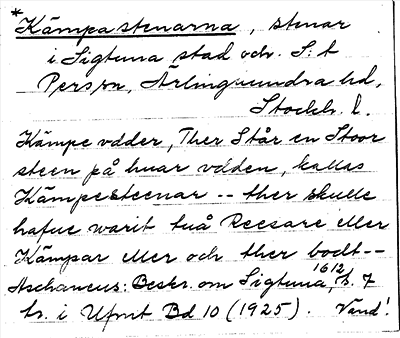 * Kämpastenarna, stenar
i Sigtuna stad och S:t
Pers sn, Ärlinghundra hd,
Stockh. l.
Kämpe udder, Ther Står en Stoor
steen på huar udden, kallas
Kämpesteenar -- ther skulle
hafue warit tuå Reesare eller
Kämpar eller och ther bodt--
Aschaneus: Beskr. om Sigtuna 1612, s. 7
tr. i Ufmt Bd 10 (1925). Vänd!